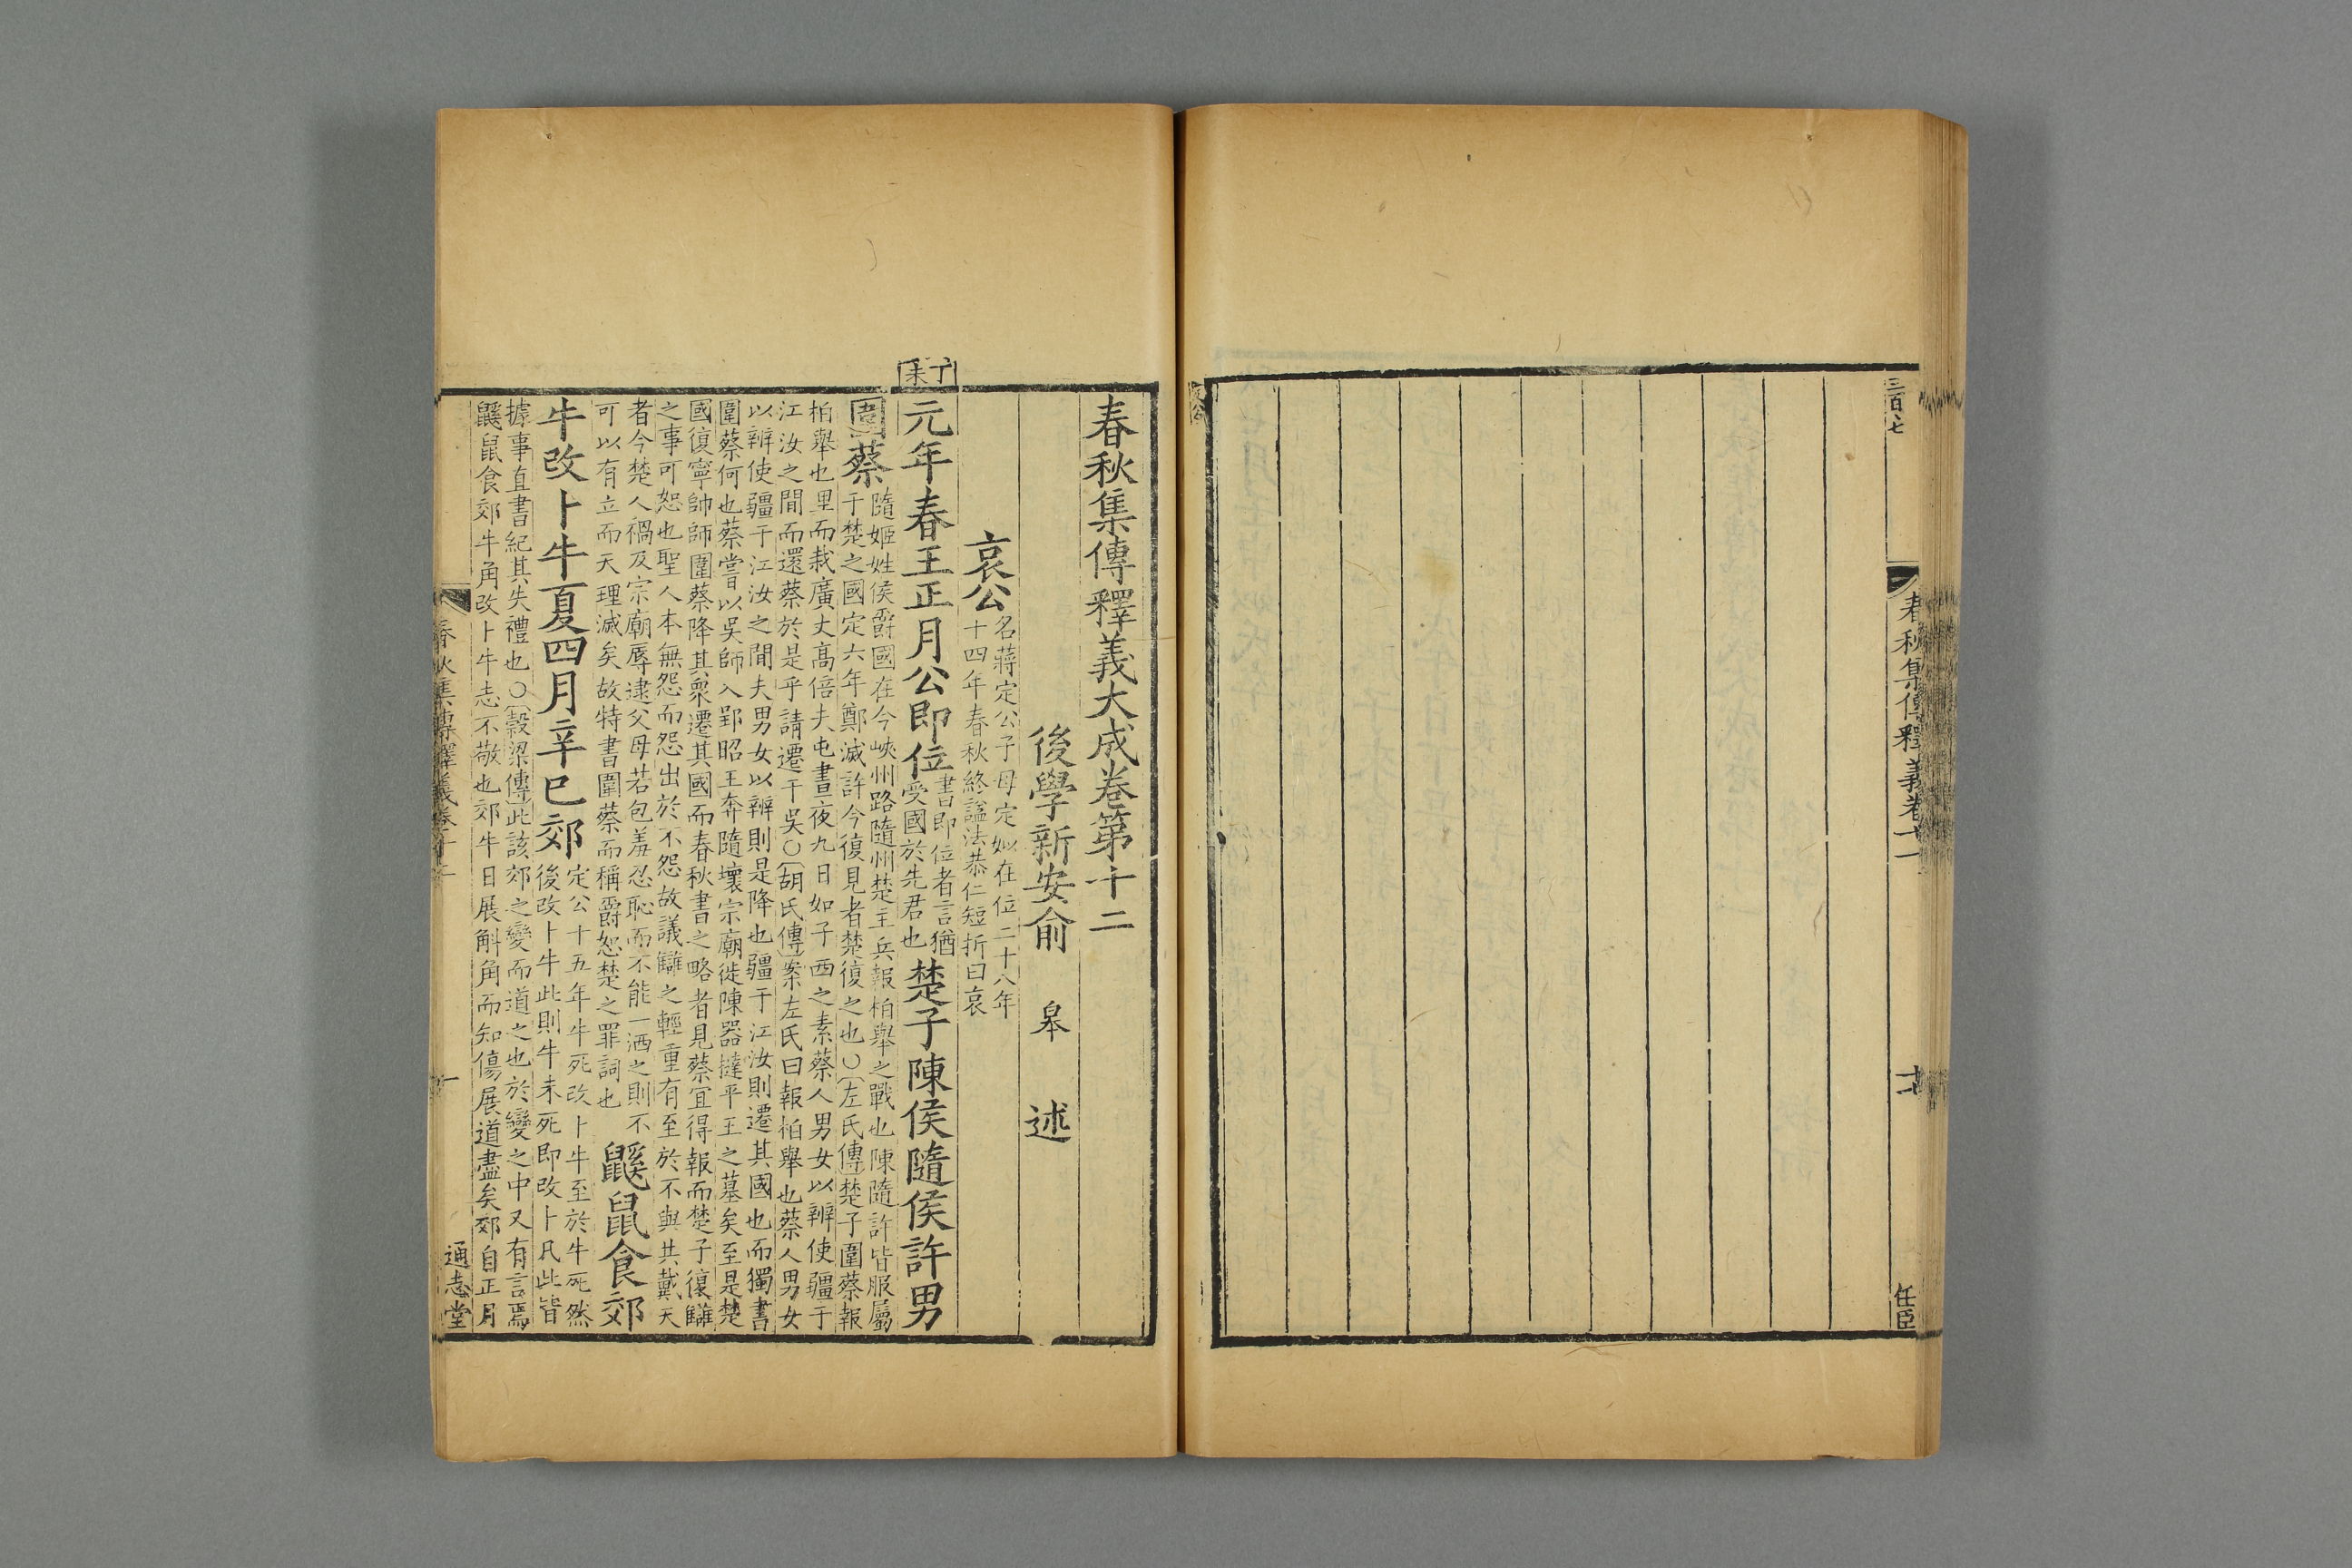 三百七
春秋集傳釋義卷十一
十七
任臣
定公
春秋集傳釋義大成卷第十二
後學新安俞 皋 述
哀公
名蔣定公子母定姒在位二十八年
十四年春秋終謚法恭仁短折曰哀
丁未
元年春王正月公即位
書即位者言猶
受國於先君也
楚子陳侯隨侯許男
圍蔡
隨姬姓侯爵國在今峽州路隨州楚主兵報柏舉之戰也陳隨許皆服屬
于楚之國定六年鄭滅許今復見者楚復之也○左氏傳楚子圍蔡報
柏舉也里而栽廣丈高倍夫屯晝夜九日如子西之素蔡人男女以辨使疆于
江汝之間而還蔡於是乎請遷于吳○胡氏傳案左氏曰報柏舉也蔡人男女
以辨使疆于江汝之間夫男女以辨則是降也疆于江汝則遷其國也而獨書
圍蔡何也蔡嘗以吳師入郢昭王奔隨壞宗廟徙陳器撻平王之墓矣至是楚
國復寧帥師圍蔡降其衆遷其國而春秋書之略者見蔡宜得報而楚子復讎
之事可恕也聖人本無怨而怨出於不怨故議讎之輕重有至於不與共戴天
者今楚人禍及宗廟辱逮父母若包羞忍恥而不能一洒之則不
可以有立而天理滅矣故特書圍蔡而稱爵恕楚之罪詞也
鼷鼠食郊
牛改卜牛夏四月辛巳郊
定公十五年牛死改卜牛至於牛死然
後改卜牛此則牛未死即改卜凡此皆
據事直書紀其失禮也○穀梁傳此該郊之變而道之也於變之中又有言焉
鼷鼠食郊牛角改卜牛志不敬也郊牛日展斛角而知傷展道盡矣郊自正月
春秋集傳釋義卷十二
一
通志堂